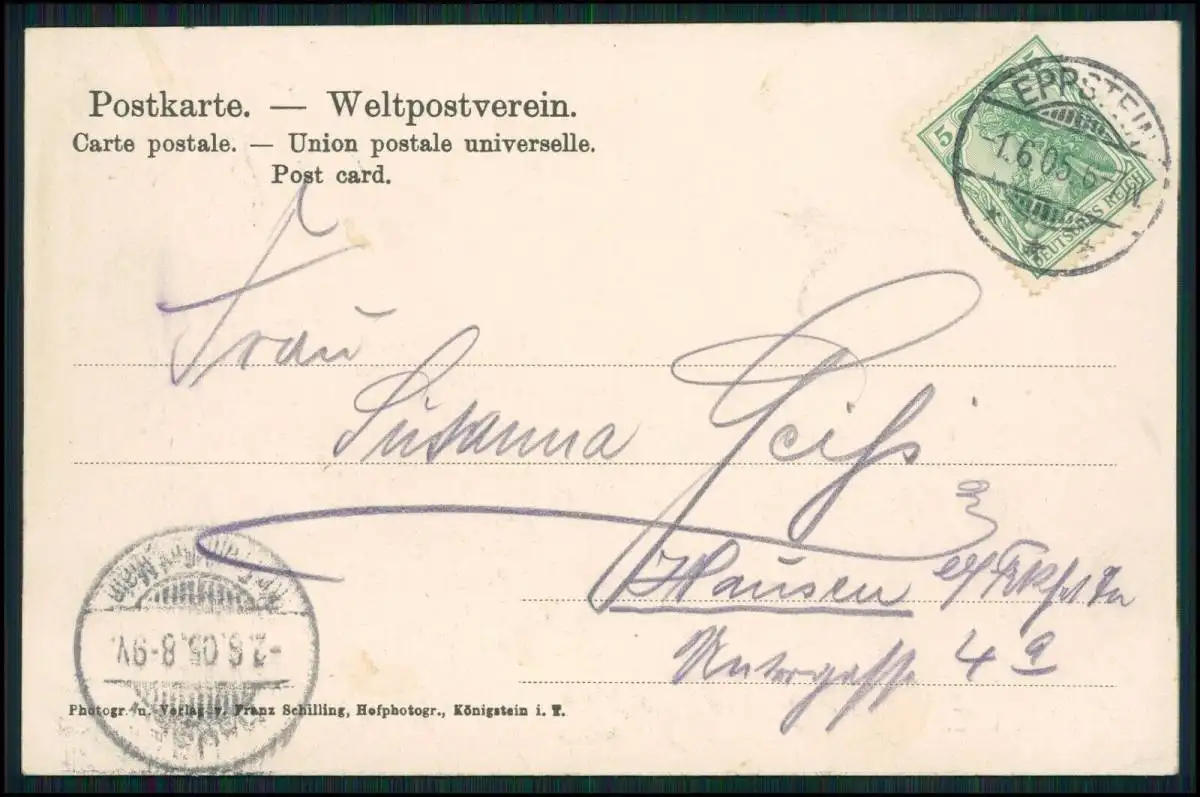 Postkarte. — Weltpostverein.
Carte postale. — Union postale universelle.
Post card.
5
DEUTSCHES REICH
EPPSTEIN
1.6.05. 6 N
Frau
Susanna Geiss
Hausen
Untergasse 4 a
-2.6.05. 8-9V.
Photogr. u. Verlag v. Franz Schilling, Hofphotogr., Königstein i. T.